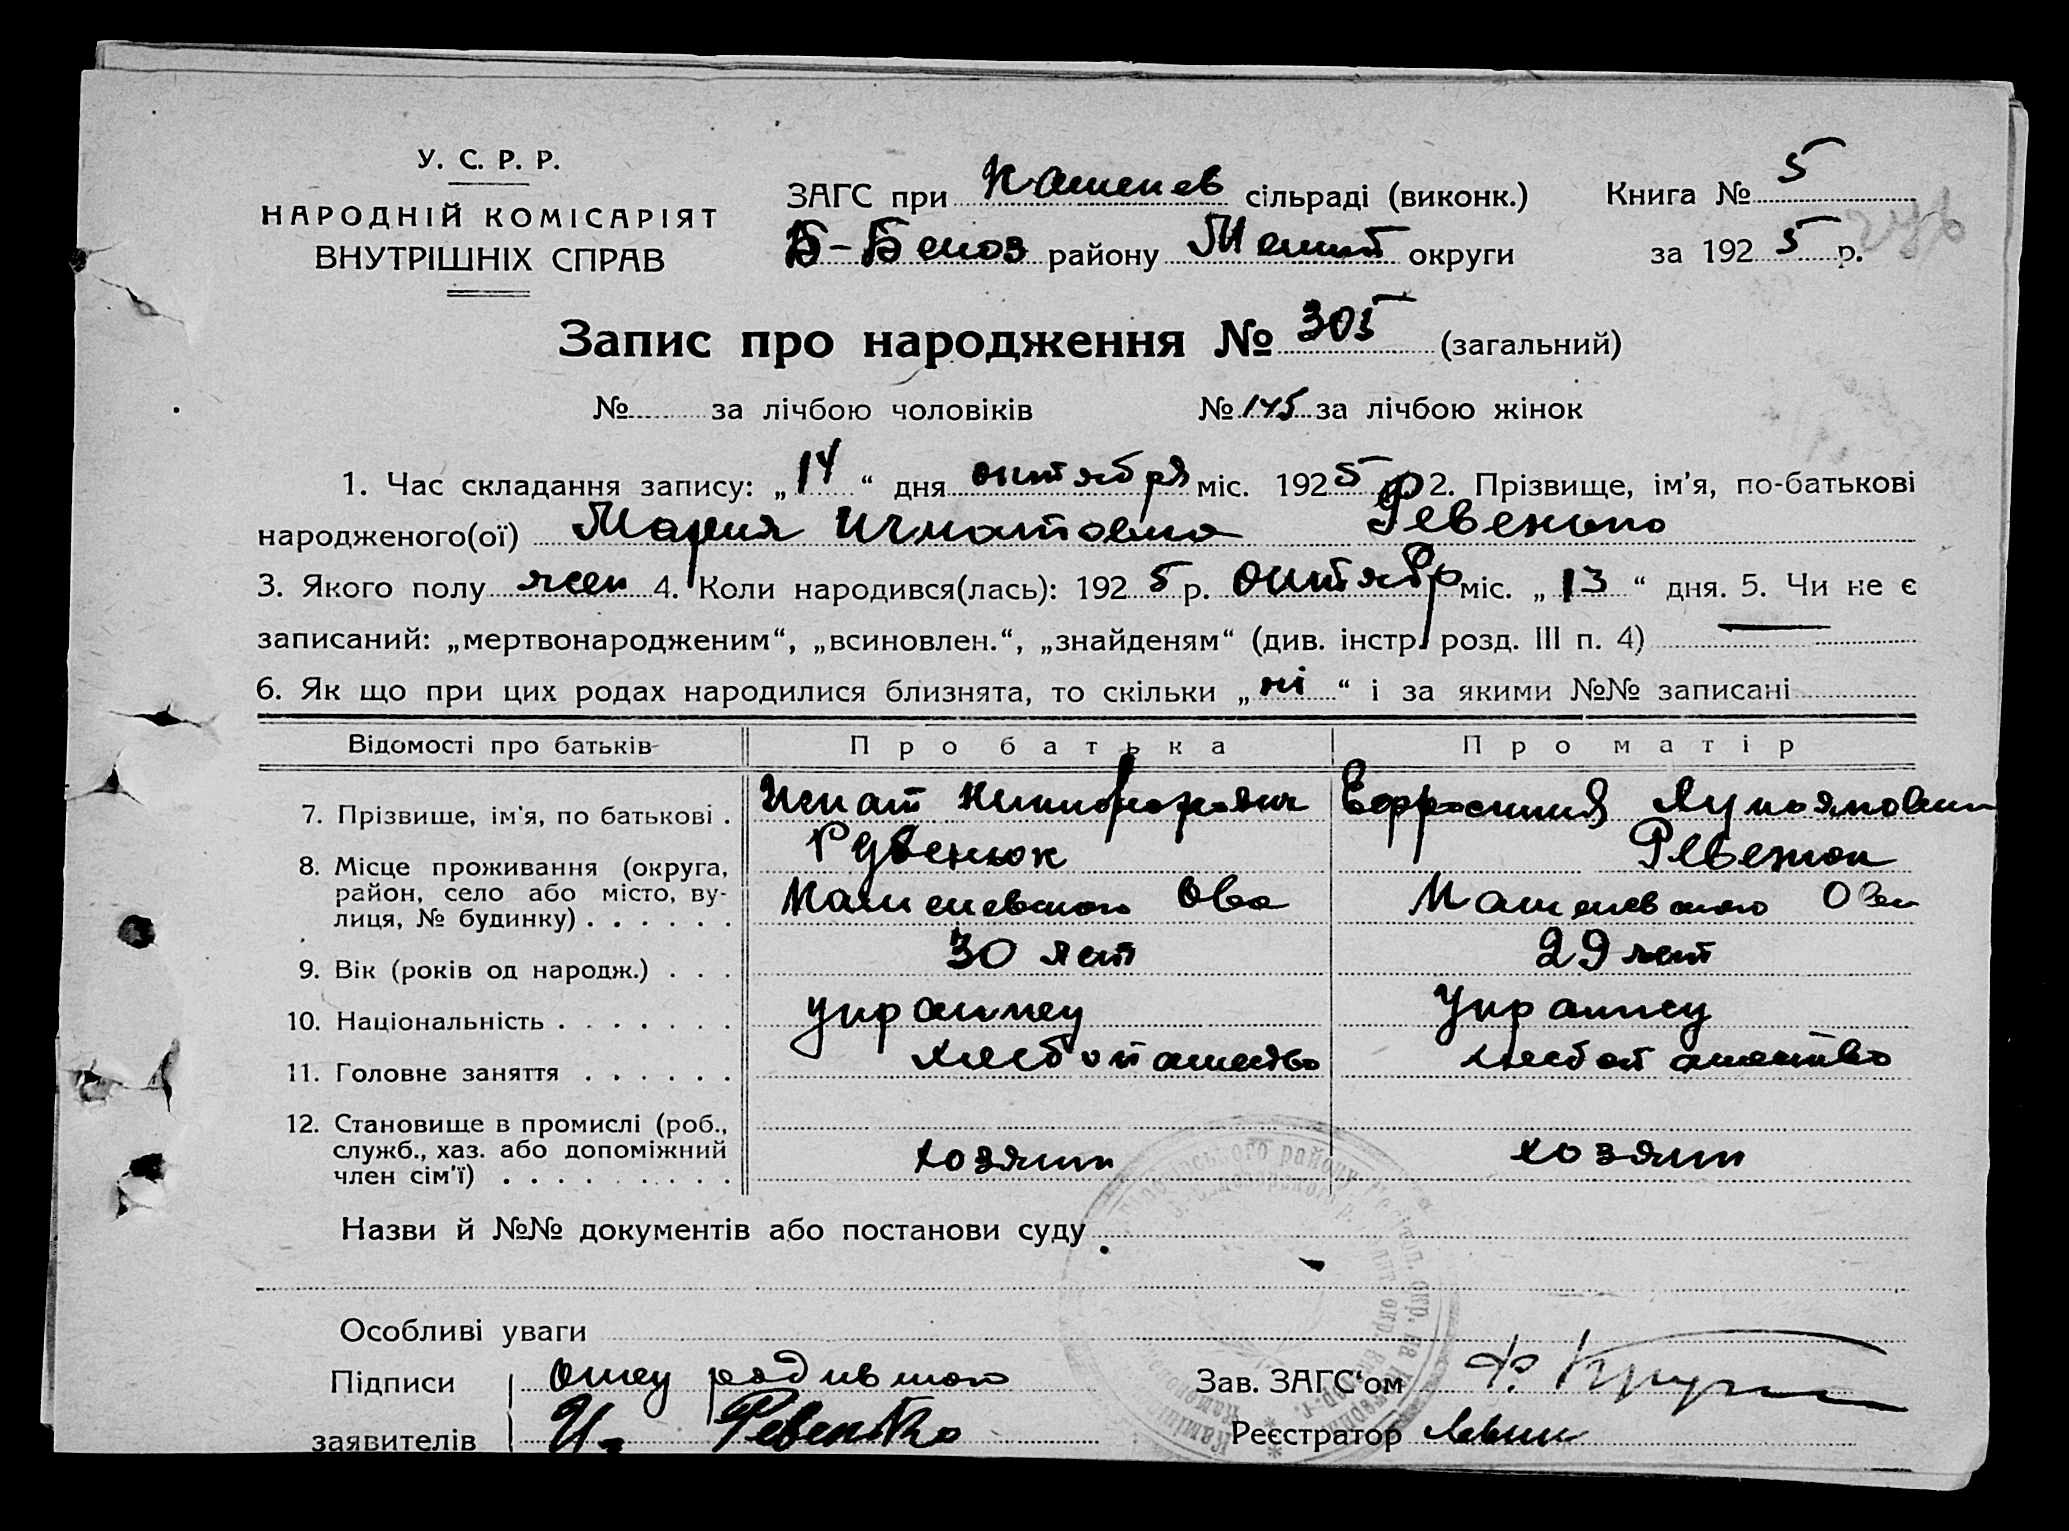 У. С. Р. Р.
НАРОДНІЙ КОМІСАРІЯТ
ВНУТРІШНІХ СПРАВ
ЗАГС при Каменев сільраді (виконк.)
Б-Белоз району Мелит округи
Книга № 5
за 1925 р.
Запис про народження № 305 (загальний)
№ за лічбою чоловіків № 145 за лічбою жінок
1. Час складання запису: „14“ дня октября міс. 1925 р 2. Прізвище, ім'я, по-батькові
народженого(ої) Мария Игнатовна Ревенко
3. Якого полу жен 4. Коли народився(лась): 1925 р. октябр міс. „13“ дня. 5. Чи не є
записаний: „мертвонародженим“, „всиновлен.“, „знайденям“ (див. інстр. розд. III п. 4) —
6. Як що при цих родах народилися близнята, то скільки „ні“ і за якими №№ записані
Відомості про батьків Про батька Про матір
7. Прізвище, ім'я, по батькові . Игнат Никифорович Ефросиния
Ревенюк Ревенюк
8. Місце проживання (округа, район, село або місто, вулиця, № будинку) . . . . . .
30 лет 29 лет
9. Вік (років од народж.) . . .
10. Національність . . . . . . . украинец Украинец
11. Головне заняття . . . . . . хлебопашество хлебопашество
12. Становище в промислі (роб., служб., хаз. або допоміжний член сім'ї) . . . . . . . . . хозяин хозяин
Назви й №№ документів або постанови суду
Особливі уваги
Підписи отец
заявителів И. Ревенко
Зав. ЗАГС‘ом
Реєстратор